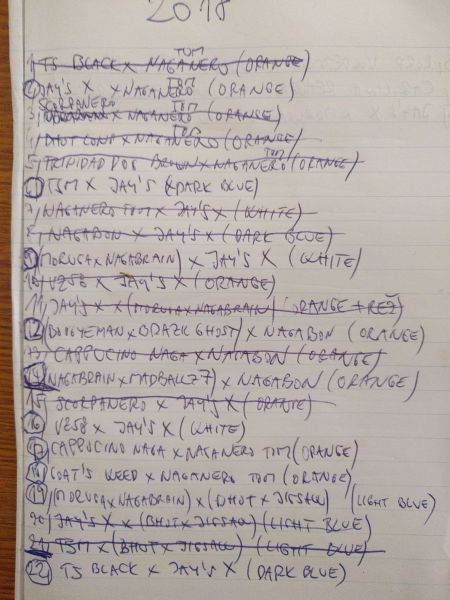 2018
1, TS BLACK X NAGANERO TOM (ORANGE)
2 JAY'S X X NAGANERO TOM (ORANGE)
3, SCORPANERO X NAGANERO TOM (ORANGE)
4, BHUT CONG X NAGANERO TOM (ORANGE)
5, TRINIDAD DOG BROWN X NAGANERO TOM (ORANGE)
6, TSM X JAY'S X DARK BLUE)
7, NAGANERO TOM X JAY'S X (WHITE)
8, NAGABON X JAY'S X (DARK BLUE)
9, (MORUGA X NAGABRAIN) X JAY'S X (WHITE)
10, V258 X JAY'S X (ORANGE)
11, JAY'S X X (MORUGA X NAGABRAIN) (ORANGE + RED)
12, (BOOGYEMAN X GHOST) X NAGABON (ORANGE)
13, CAPPUCINO NAGA X NAGABON (ORANGE)
14, (NAGABRAIN X MADBALLZ 7) X NAGABON (ORANGE)
15, SCORPANERO X JAY'S X (ORANGE)
16, V258 X JAY'S X (WHITE)
17, CAPPUCINO NAGA X NAGANERO TOM (ORANGE)
18, GOAT'S WEED X NAGANERO TOM (ORANGE)
19, (MORUGA X NAGABRAIN) X (BHUT X JIGSAW) (LIGHT BLUE)
20, JAY'S X X (BHUT X JIGSAW) (LIGHT BLUE)
21, TSM X (BHUT X JIGSAW) (LIGHT BLUE)
22, TS BLACK X JAY'S X (DARK BLUE)